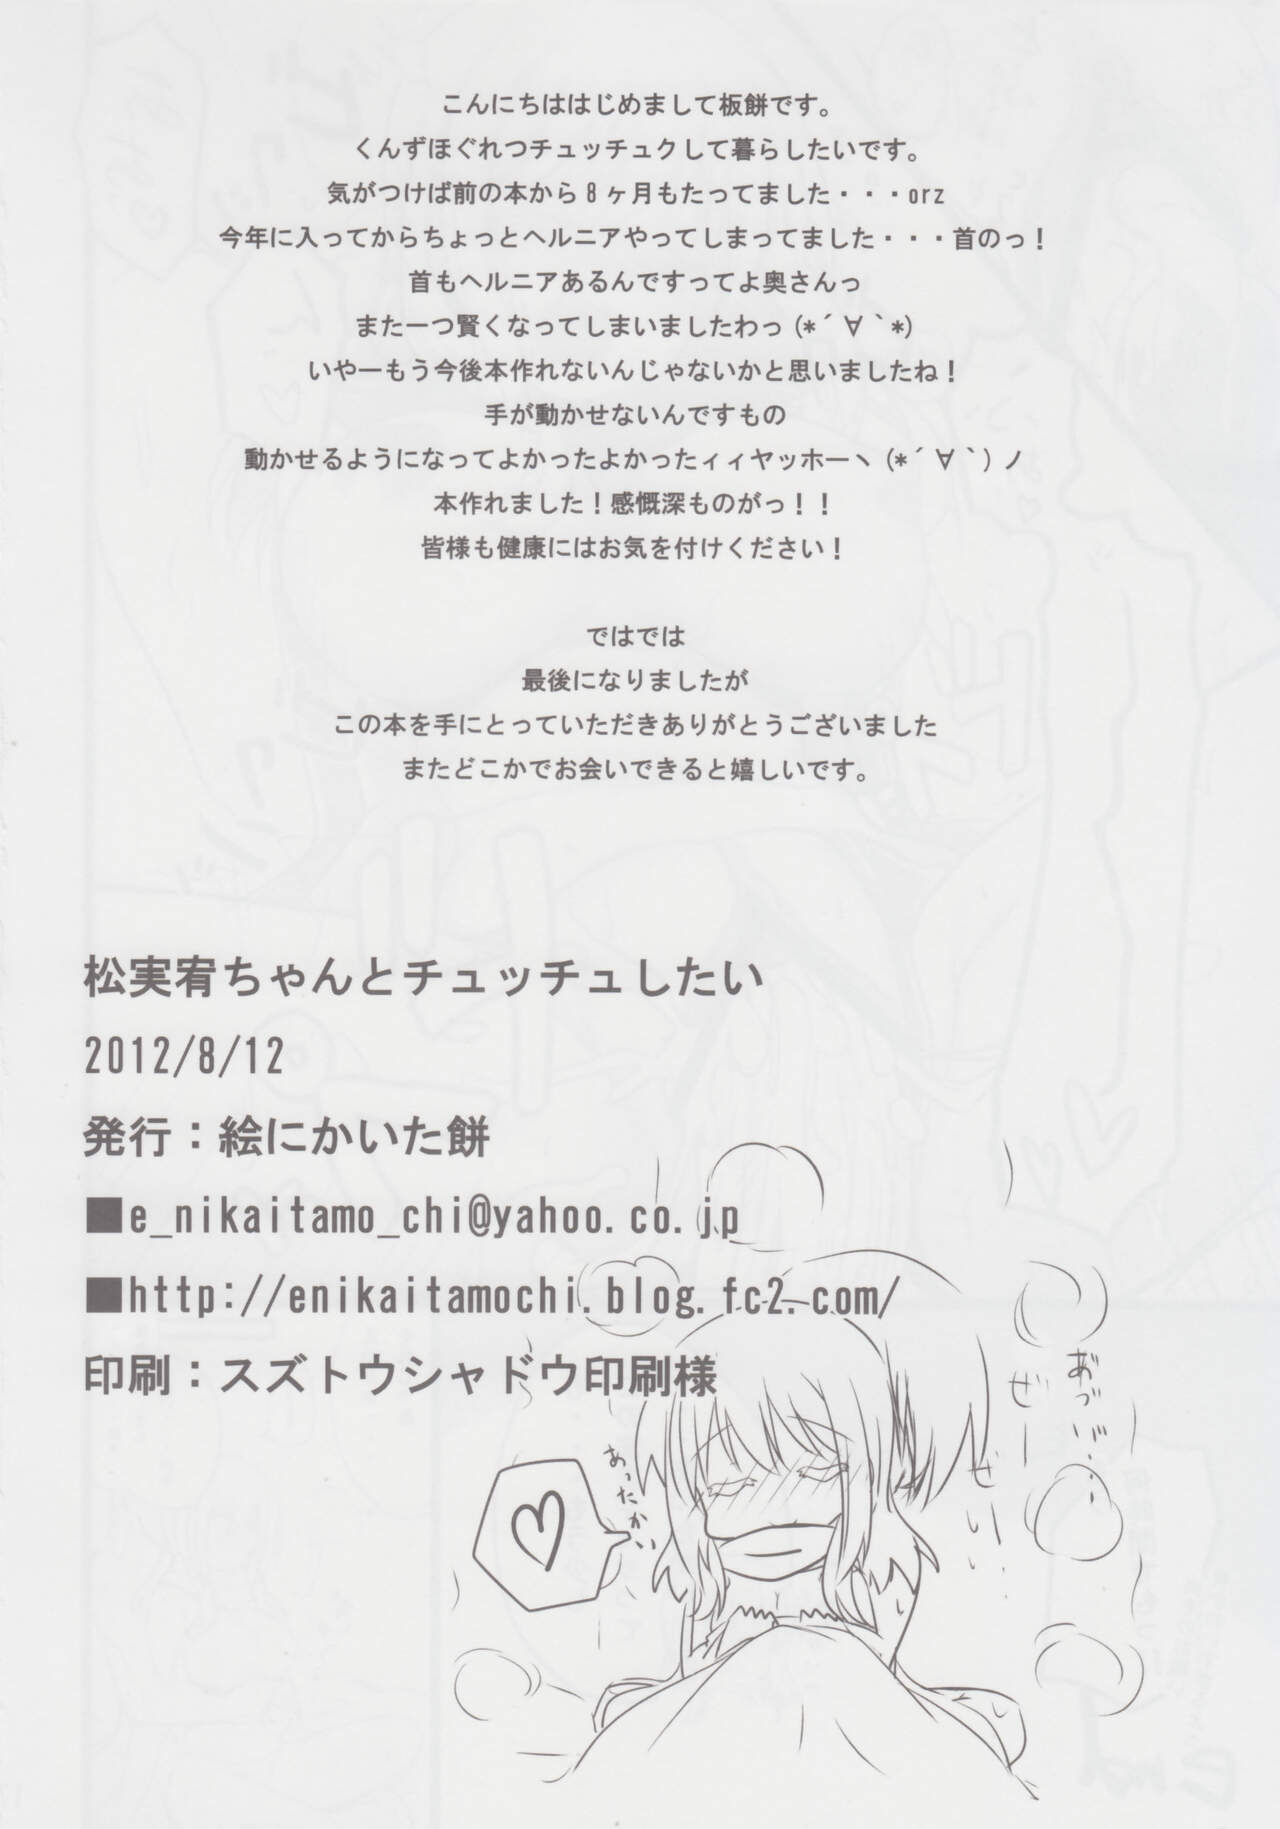 こんにちははじめまして板餅です。
くんずほぐれつチュッチュクして暮らしたいです。
気がつけば前の本から8ヶ月もたってました・・・orz
今年に入ってからちょっとヘルニアやってしまってました・・・首のっ!
首もヘルニアあるんですってよ奥さんっ
また一つ賢くなってしまいましたわっ(*´∀`*)
いやーもう今後本作れないんじゃないかと思いましたね!
手が動かせないんですもの
動かせるようになってよかったよかったィィヤッホーヽ(*´∀`)ノ
本作れました!感慨深ものがっ!!
皆様も健康にはお気を付けください!
ではでは
最後になりましたが
この本を手にとっていただきありがとうございました
またどこかでお会いできると嬉しいです。
松実宥ちゃんとチュッチュしたい
2012/8/12
発行:絵にかいた餅
■e_nikaitamo_chi@yahoo.co.jp
■http://enikaitamochi.blog.fc2.com/
印刷:スズトウシャドウ印刷様
あづい゛・・・
ぜーぜぃ・・
あったかい
♡